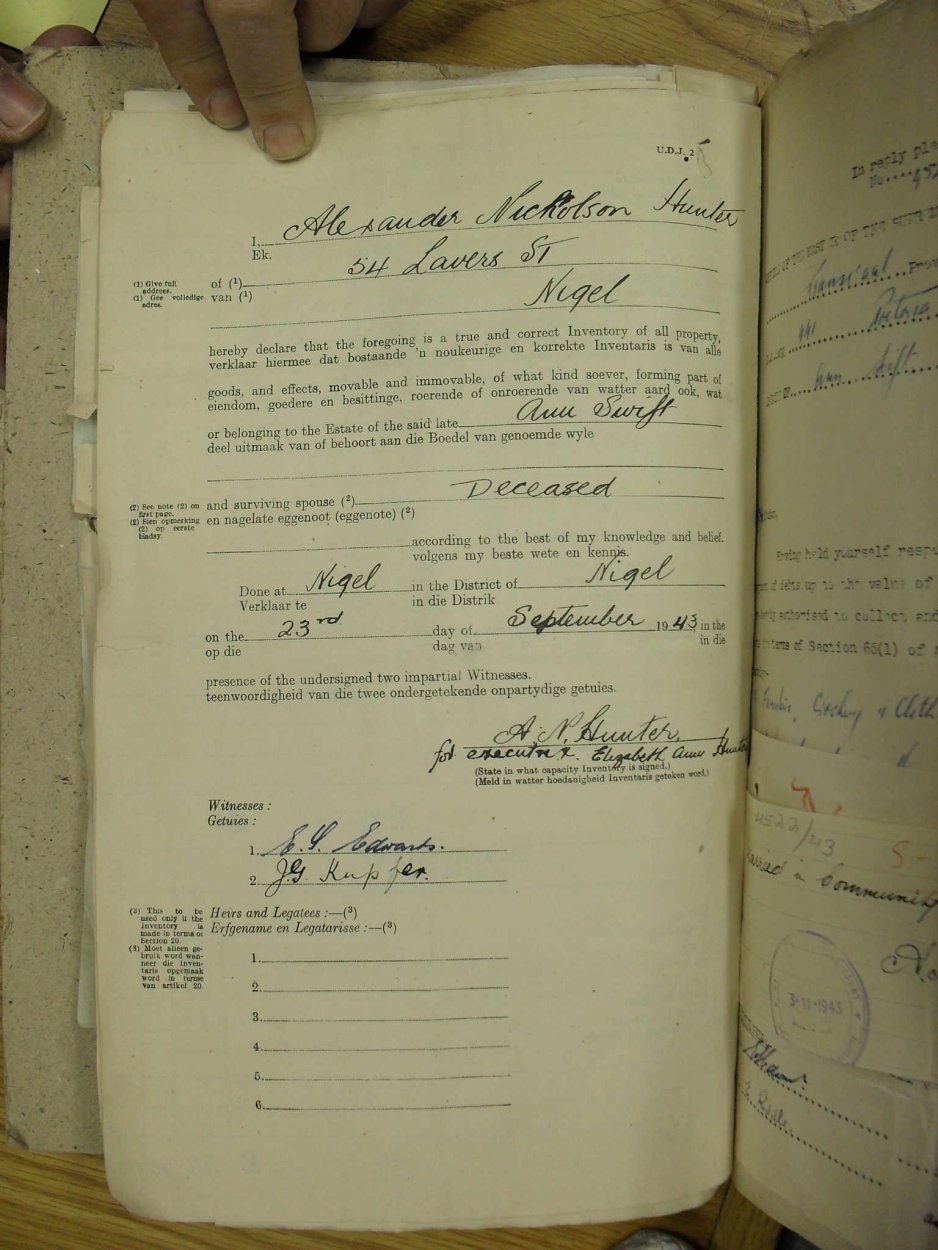 U.D.J. 2
I, Alexander Nickolson Hunter
Ek.
of (¹) 54 Lavers St
van (¹)
Nigel
(1) Give full address.
(1) Gee volledige adres.
hereby declare that the foregoing is a true and correct Inventory of all property,
verklaar hiermee dat bostaande 'n noukeurige en korrekte Inventaris is van alle
goods, and effects, movable and immovable, of what kind soever, forming part of
eiendom, goedere en besittinge, roerende of onroerende van watter aard ook, wat
or belonging to the Estate of the said late Ann Swift
deel uitmaak van of behoort aan die Boedel van genoemde wyle
and surviving spouse (²) Deceased
en nagelate eggenoot (eggenote) (²)
(2) See note (2) on first page.
(2) Sien opmerking (2) op eerste bladsy.
according to the best of my knowledge and belief.
volgens my beste wete en kennis.
Done at Nigel in the District of Nigel
Verklaar te in die Distrik
on the 23rd day of September 1943 in the
op die dag van in die
presence of the undersigned two impartial Witnesses.
teenwoordigheid van die twee ondergetekende onpartydige getuies.
A. N. Hunter.
for executrix. Elizabeth Ann Hunter
(State in what capacity Inventory is signed.)
(Meld in watter hoedanigheid Inventaris geteken word.)
Witnesses :
Getuies :
1. E. S. Edwards.
2. J.G Kupfer.
Heirs and Legatees :—(³)
Erfgename en Legatarisse :—(³)
(3) This to be used only if the Inventory is made in terms of Section 20.
(3) Moet alleen gebruik word wanneer die Inventaris opgemaak word in terme van artikel 20.
1.
2.
3.
4.
5.
6.
In reply ple
No.
Transvaal
Pretoria
Ann Swift
Having held yourself respo
of debts up to the value of
authorised to collect and
in terms of Section 65(1) of
4522/43
married in Community
3-11-1943